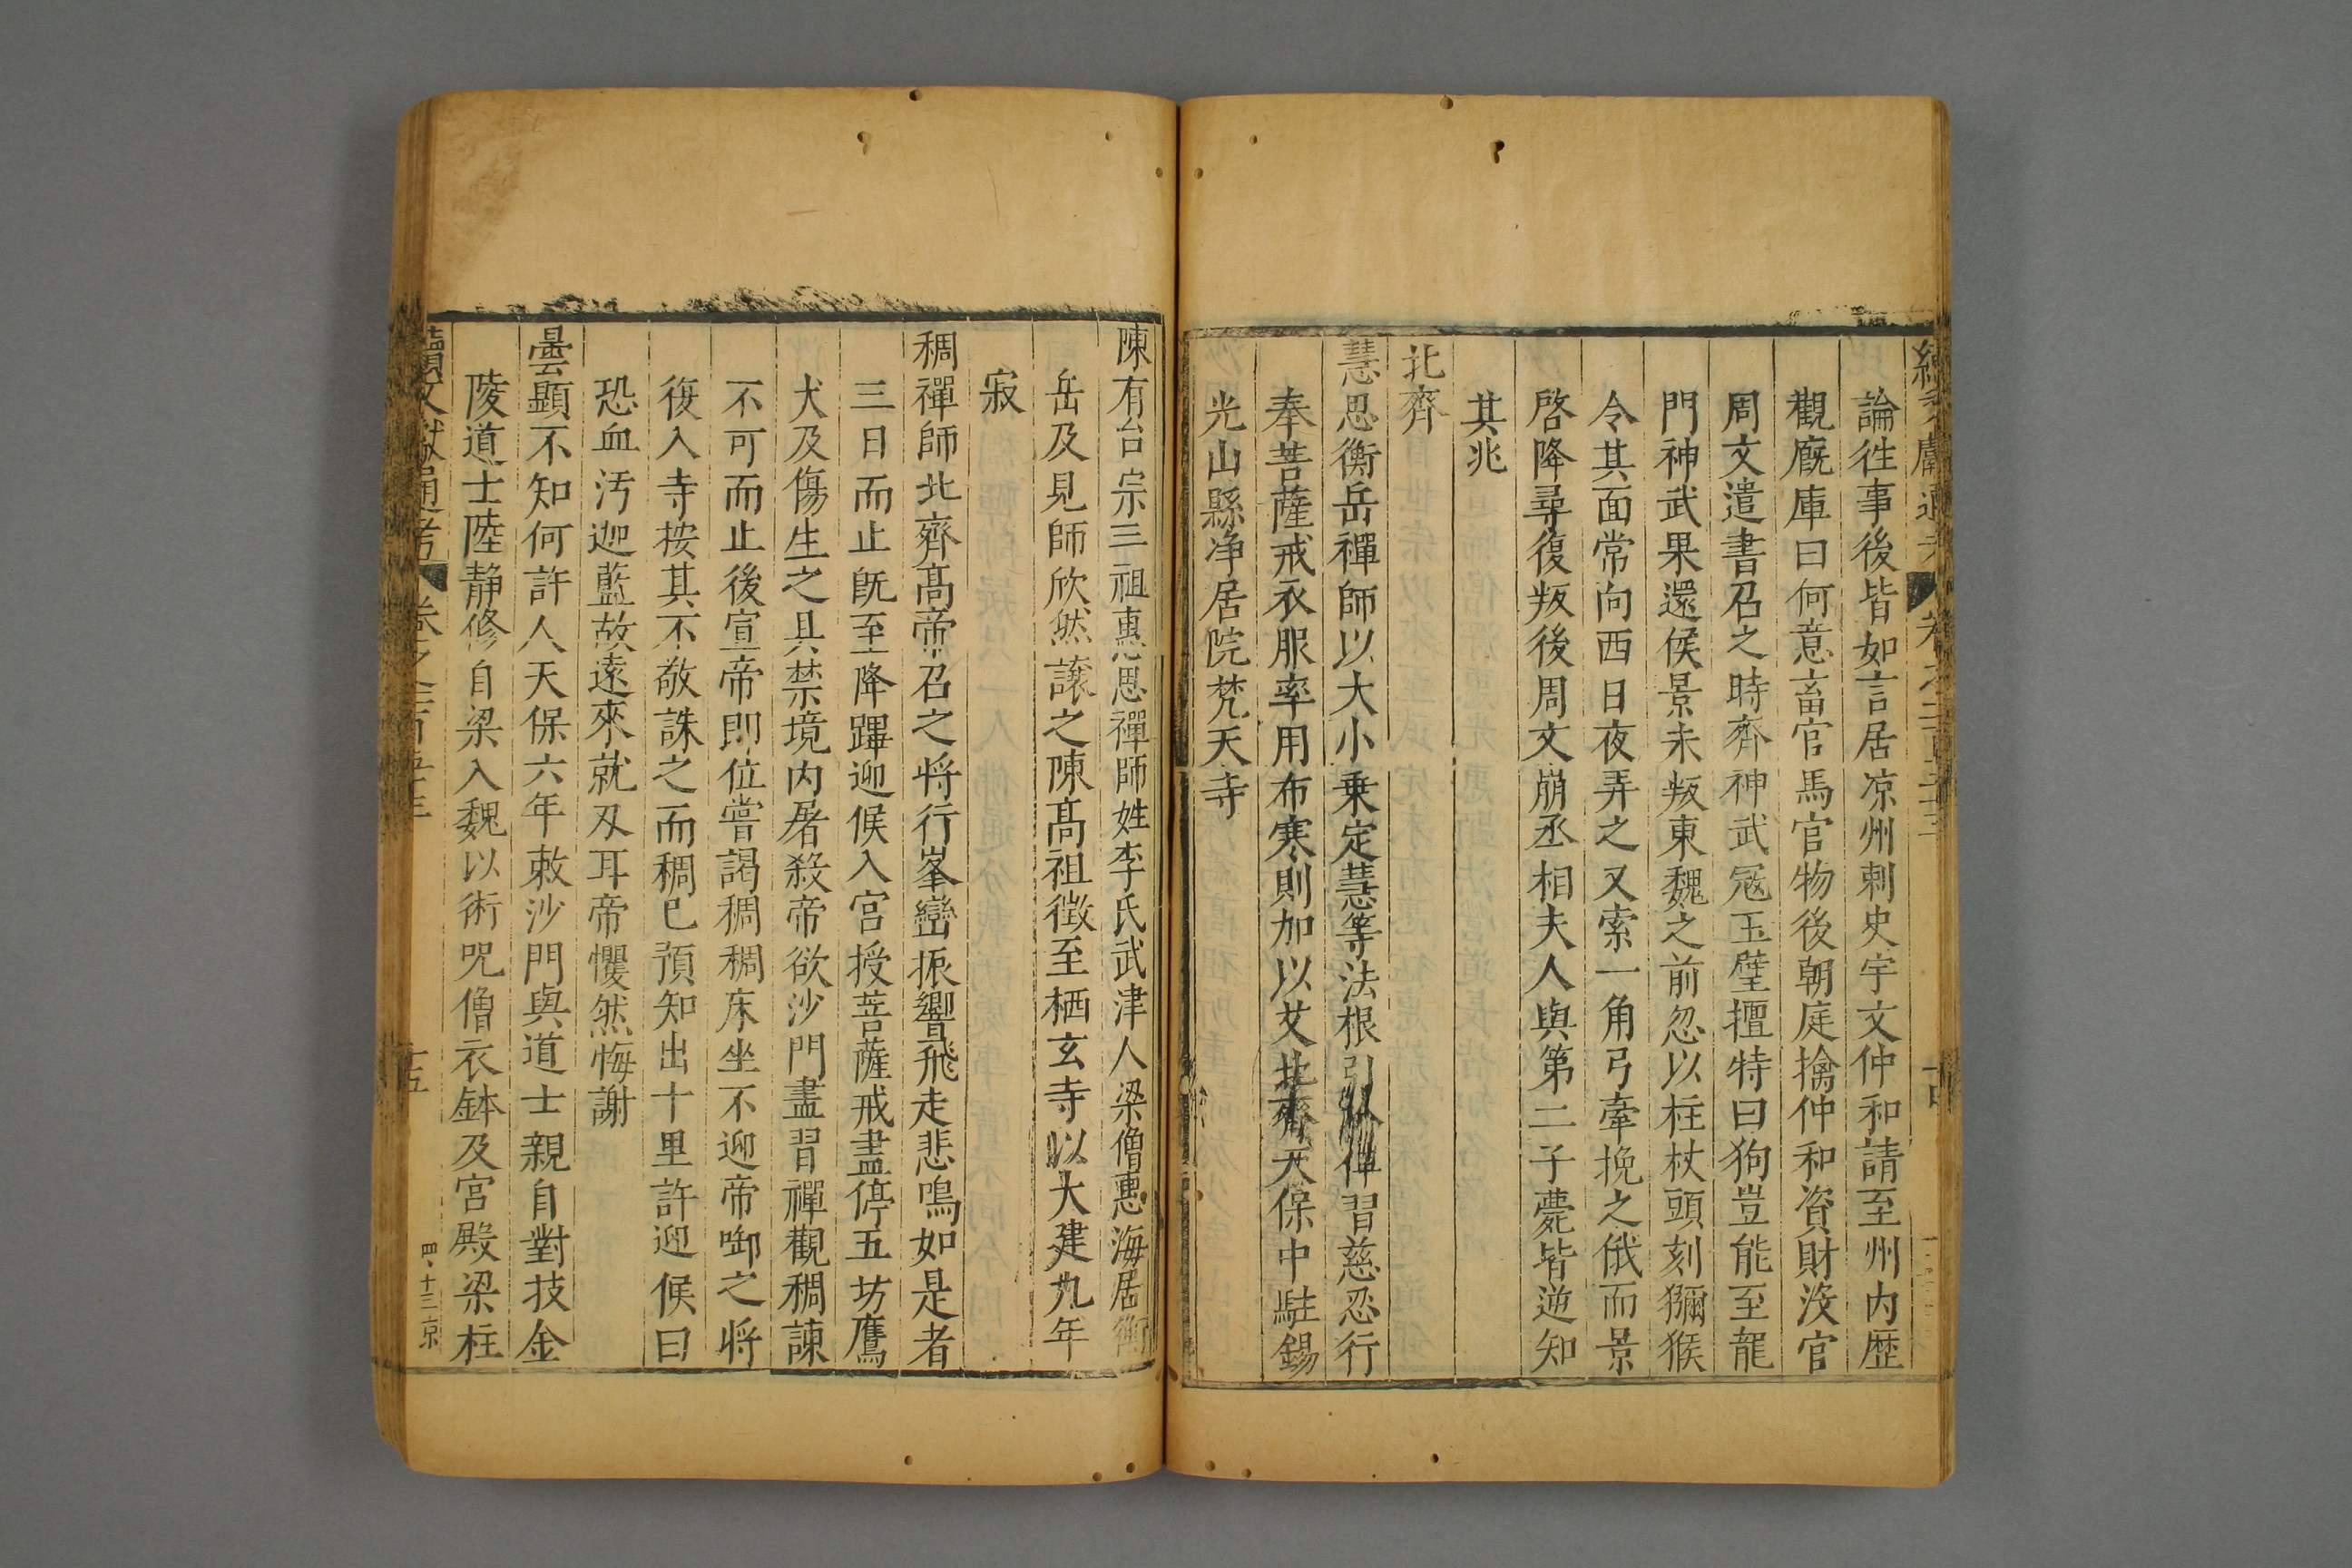 論徃事後皆如言居凉州刺史宇文仲和請至州内歴
觀廐庫曰何意畜官馬官物後朝庭擒仲和資財没官
周文遣書召之時齊神武冦玉璧擅特曰狗豈能至龍
門神武果還侯景未叛東魏之前忽以柱杖頭刻獼猴
令其面常向西日夜弄之又索一角弓牽挽之俄而景
啓降尋復叛後周文崩丞相夫人與第二子薨皆逆知
其兆
北齊
慧思衡岳禪師以大小乗定慧等法根引習慈忍行
奉菩薩戒衣服率用布寒則加以艾北齊天保中駐錫
光山縣净居院梵天寺
陳有台宗三祖惠思禪師姓李氏武津人梁僧惠海居衡
岳及見師欣然讓之陳髙祖徴至栖玄寺以大建九年
寂
稠禪師北齊髙帝召之将行峯巒振響飛走悲鳴如是者
三日而止旣至降蹕迎候入宫授菩薩戒盡停五坊鷹
犬及傷生之具禁境内屠殺帝欲沙門盡習禪觀稠諫
不可而止後宣帝即位嘗謁稠稠床坐不迎帝啣之将
復入寺按其不敬誅之而稠已預知出十里許迎候曰
恐血汚迦藍故遠來就刄耳帝懼然悔謝
曇顯不知何許人天保六年敕沙門與道士親自對技金
陵道士陸静修自梁入魏以術咒僧衣鉢及宫殿梁柱
續文獻通考 卷之二百四十三 十五
四、十三京